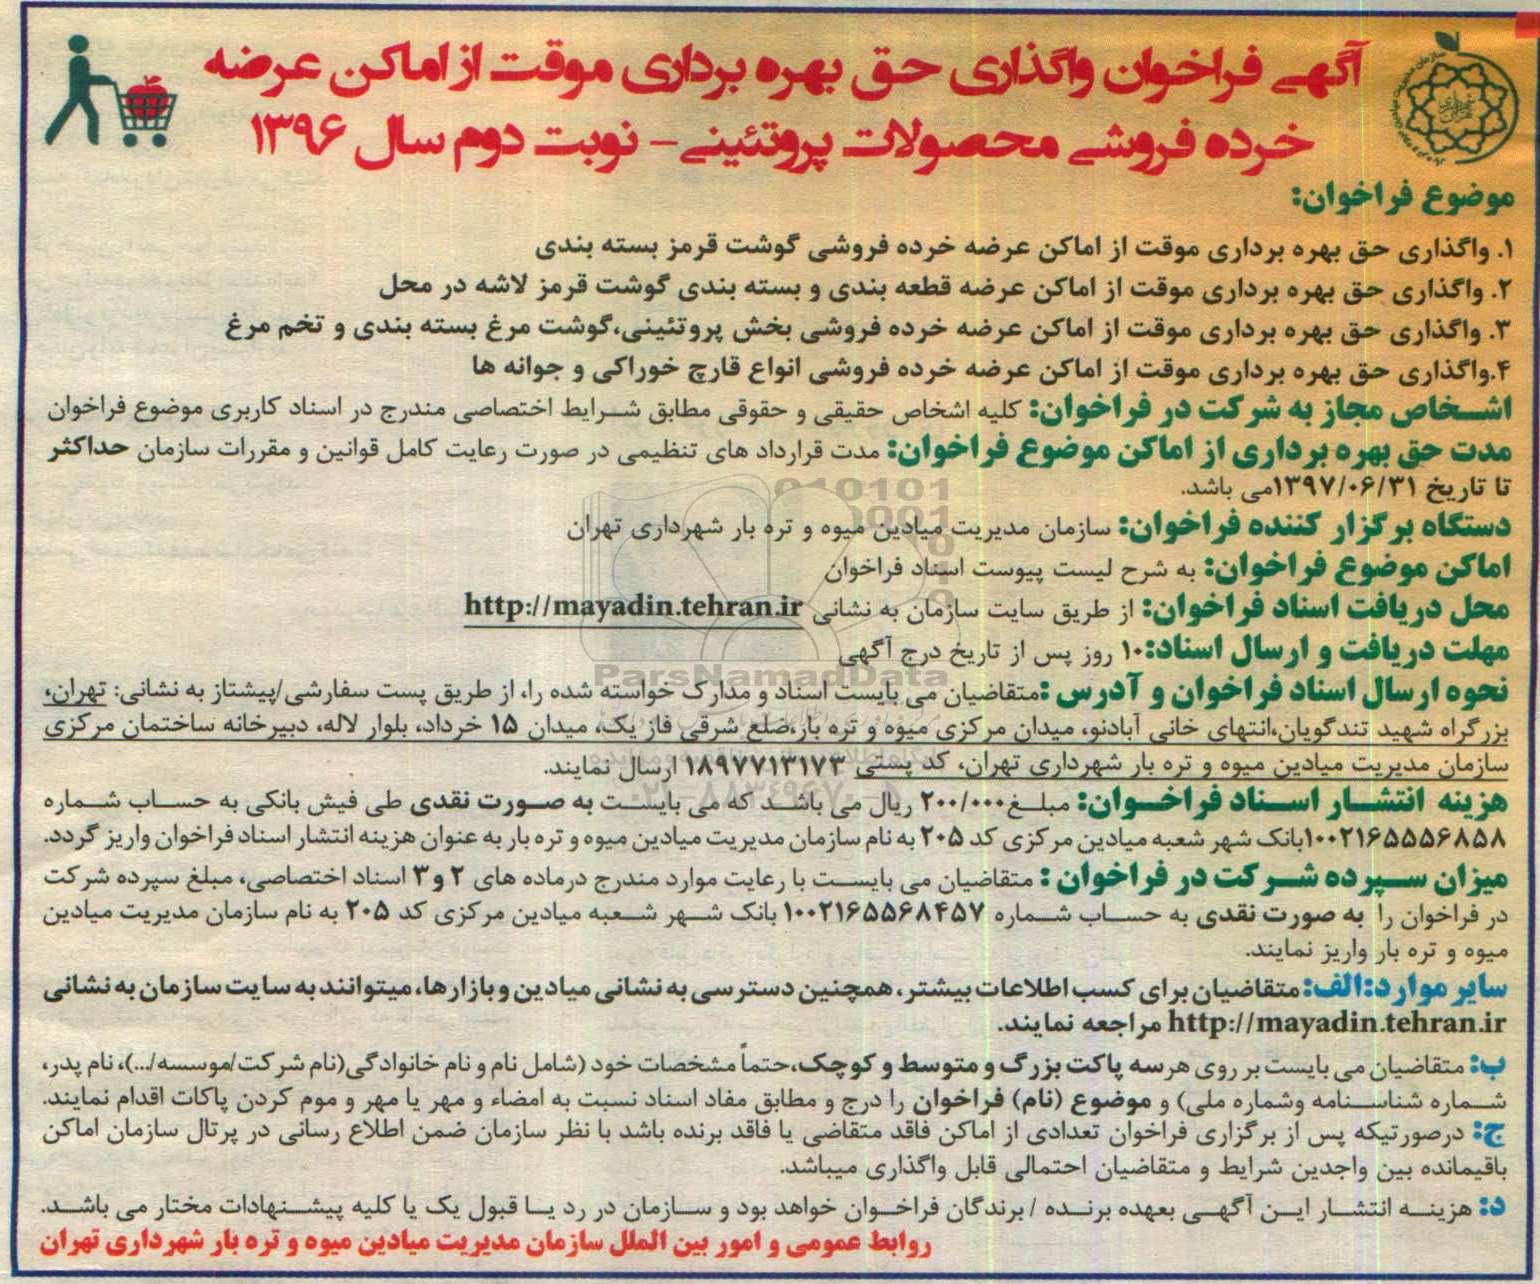 آگهی فراخوان واگذاری حق بهره برداری موقت از اماکن عرضه
خرده فروشی محصولات پروتئینی - نوبت دوم سال ۱۳۹۶
موضوع فراخوان:
۱. واگذاری حق بهره برداری موقت از اماکن عرضه خرده فروشی گوشت قرمز بسته بندی
۲. واگذاری حق بهره برداری موقت از اماکن عرضه قطعه بندی و بسته بندی گوشت قرمز لاشه در محل
۳. واگذاری حق بهره برداری موقت از اماکن عرضه خرده فروشی بخش پروتئینی،گوشت مرغ بسته بندی و تخم مرغ
۴.واگذاری حق بهره برداری موقت از اماکن عرضه خرده فروشی انواع قارچ خوراکی و جوانه ها
اشخاص مجاز به شرکت در فراخوان: کلیه اشخاص حقیقی و حقوقی مطابق شرایط اختصاصی مندرج در اسناد کاربری موضوع فراخوان
مدت حق بهره برداری از اماکن موضوع فراخوان: مدت قرارداد های تنظیمی در صورت رعایت کامل قوانین و مقررات سازمان حداکثر
تا تاریخ ۱۳۹۷/۰۶/۳۱می باشد.
دستگاه برگزار کننده فراخوان: سازمان مدیریت میادین میوه و تره بار شهرداری تهران
اماکن موضوع فراخوان: به شرح لیست پیوست اسناد فراخوان
محل دریافت اسناد فراخوان: از طریق سایت سازمان به نشانی http://mayadin.tehran.ir
مهلت دریافت و ارسال اسناد:۱۰ روز پس از تاریخ درج آگهی
نحوه ارسال اسناد فراخوان و آدرس :متقاضیان می بایست اسناد و مدارک خواسته شده را، از طریق پست سفارشی/پیشتاز به نشانی: تهران،
بزرگراه شهید تندگویان،انتهای خانی آبادنو، میدان مرکزی میوه و تره بار،ضلع شرقی فاز یک، میدان ۱۵ خرداد، بلوار لاله، دبیرخانه ساختمان مرکزی
سازمان مدیریت میادین میوه و تره بار شهرداری تهران، کد پستی ۱۸۹۷۷۱۳۱۷۳ ارسال نمایند.
هزینه انتشار اسناد فراخوان: مبلغ۲۰۰/۰۰۰ ریال می باشد که می بایست به صورت نقدی طی فیش بانکی به حساب شماره
۱۰۰۲۱۶۵۵۵۶۸۵۸بانک شهر شعبه میادین مرکزی کد ۲۰۵ به نام سازمان مدیریت میادین میوه و تره بار به عنوان هزینه انتشار اسناد فراخوان واریز گردد.
میزان سپرده شرکت در فراخوان : متقاضیان می بایست با رعایت موارد مندرج درماده های ۲ و۳ اسناد اختصاصی، مبلغ سپرده شرکت
در فراخوان را به صورت نقدی به حساب شماره ۱۰۰۲۱۶۵۵۶۸۴۵۷ بانک شهر شعبه میادین مرکزی کد ۲۰۵ به نام سازمان مدیریت میادین
میوه و تره بار واریز نمایند.
سایر موارد:الف: متقاضیان برای کسب اطلاعات بیشتر، همچنین دسترسی به نشانی میادین و بازارها، میتوانند به سایت سازمان به نشانی
http://mayadin.tehran.ir مراجعه نمایند.
ب: متقاضیان می بایست بر روی هرسه پاکت بزرگ و متوسط و کوچک،حتماً مشخصات خود (شامل نام و نام خانوادگی(نام شرکت/موسسه/...)، نام پدر،
شماره شناسنامه وشماره ملی) و موضوع (نام) فراخوان را درج و مطابق مفاد اسناد نسبت به امضاء و مهر یا مهر و موم کردن پاکات اقدام نمایند.
ج: درصورتیکه پس از برگزاری فراخوان تعدادی از اماکن فاقد متقاضی یا فاقد برنده باشد با نظر سازمان ضمن اطلاع رسانی در پرتال سازمان اماکن
باقیمانده بین واجدین شرایط و متقاضیان احتمالی قابل واگذاری میباشد.
د: هزینه انتشار این آگهی بعهده برنده / برندگان فراخوان خواهد بود و سازمان در رد یا قبول یک یا کلیه پیشنهادات مختار می باشد.
روابط عمومی و امور بین الملل سازمان مدیریت میادین میوه و تره بار شهرداری تهران
ParsNamadData